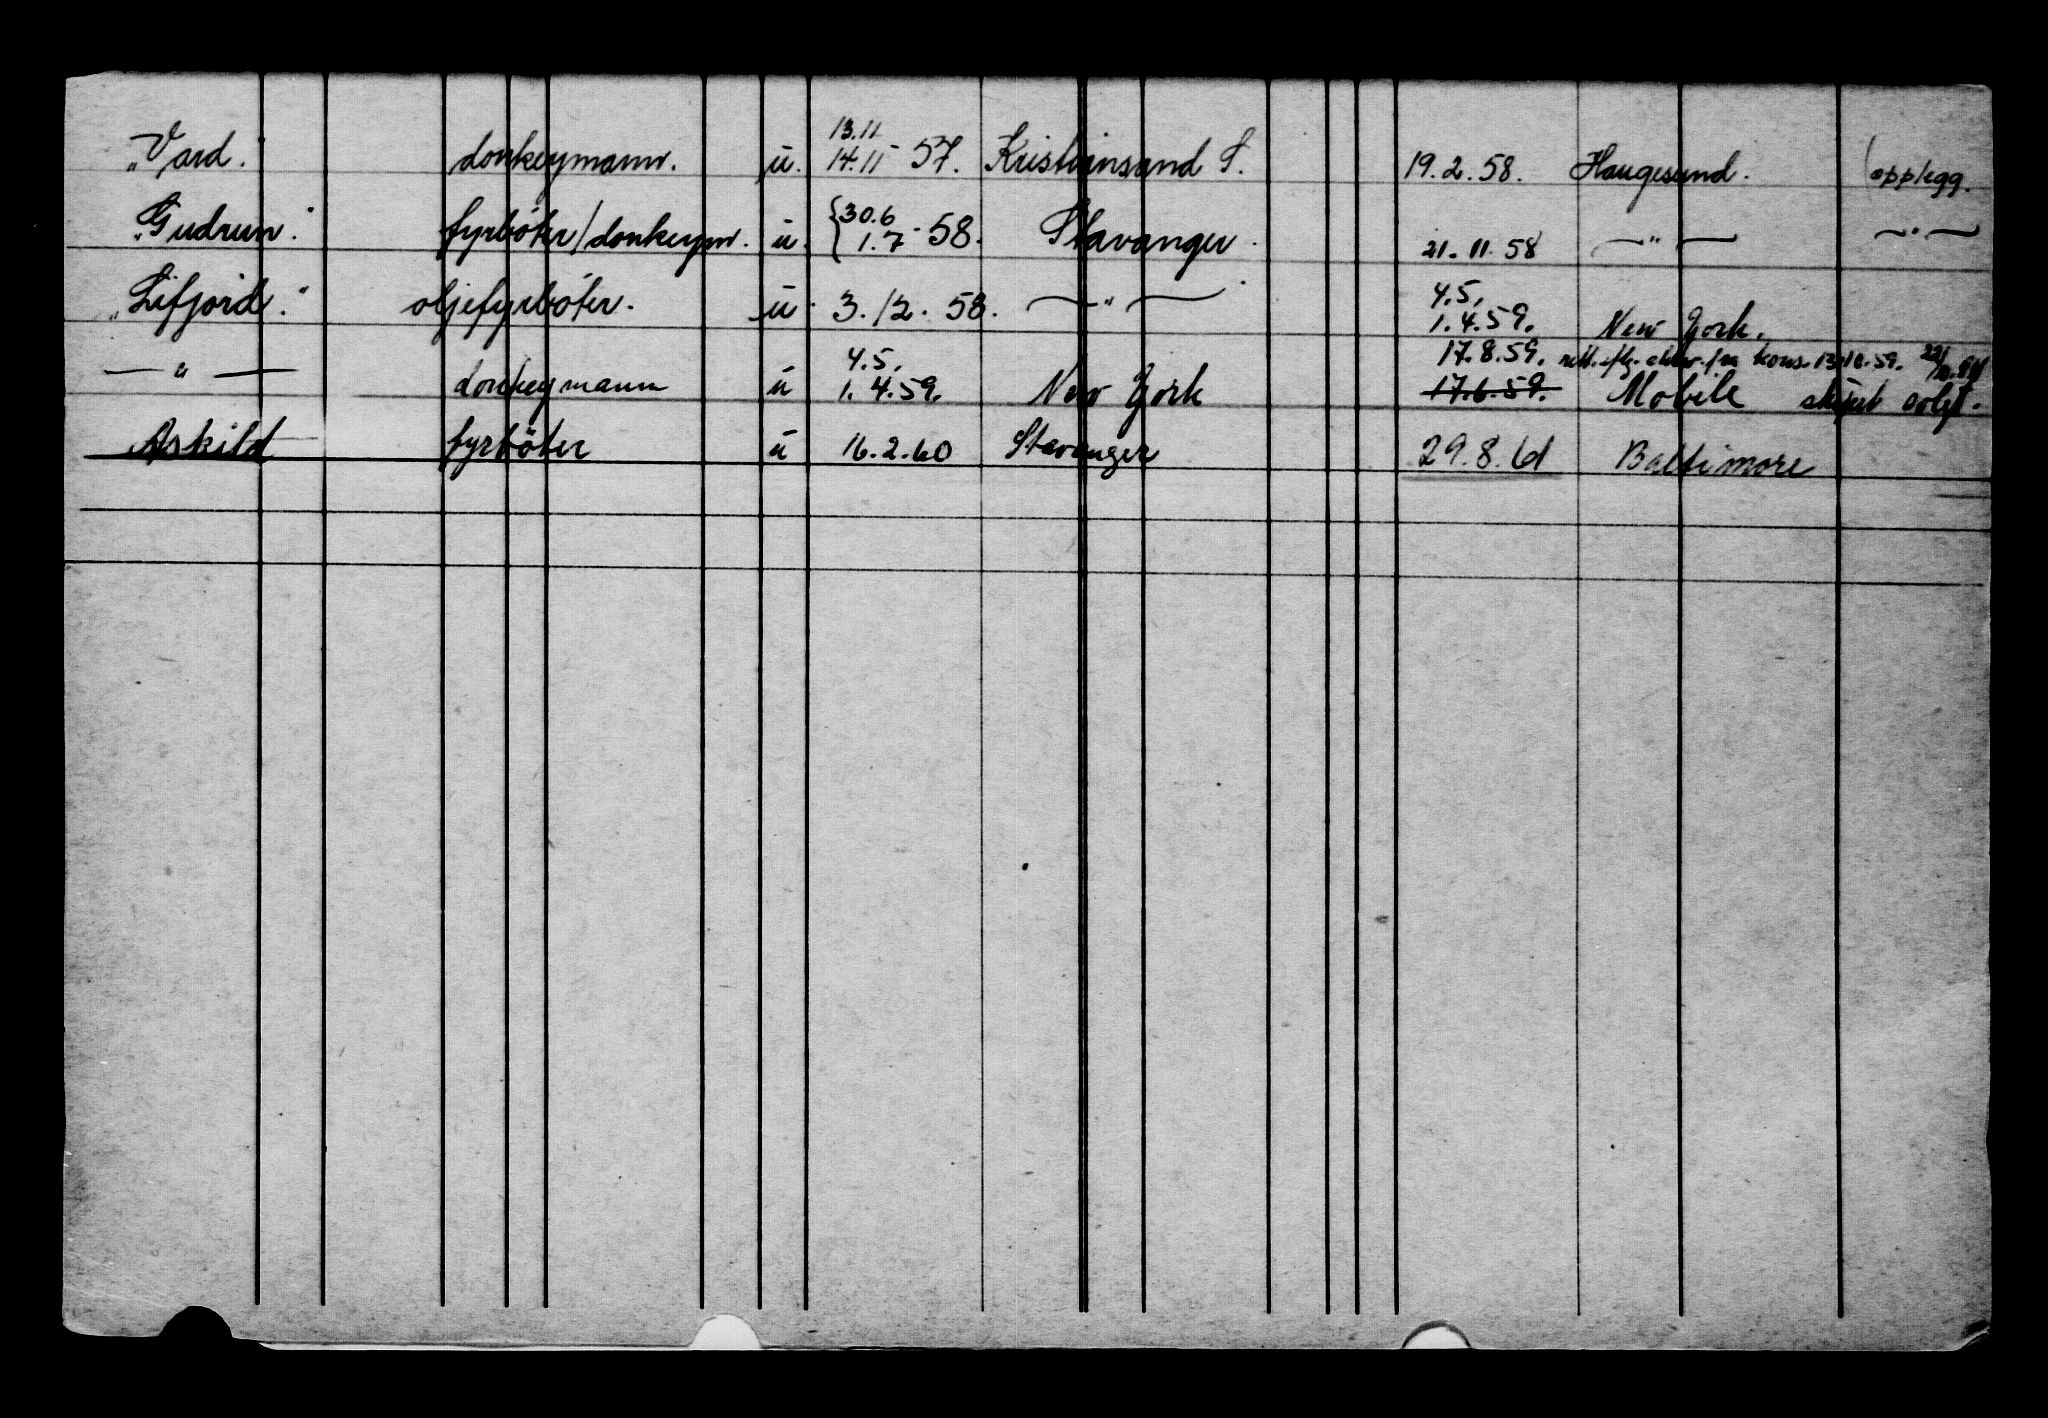 "Vard." donkeymann. u. 13.11 14.11 57. Kristiansand S. 19.2.58. Haugesund. opplegg.
"Gudrun." fyrböter/donkeym. u. {30.6 1.7 58. Stavanger. 21.11.58 —"— —"—
"Lifjord." oljefyrböter. u. 3./2.58. —"— 4.5. 1.4.59. New York.
17.8.59. rett. kons. 13.10.59.
—"— donkeymann u 4.5. 1.4.59. New York 17.6.59. Mobile skipet solgt.
Askild fyrböter u 16.2.60 Stavanger 29.8.61 Baltimore